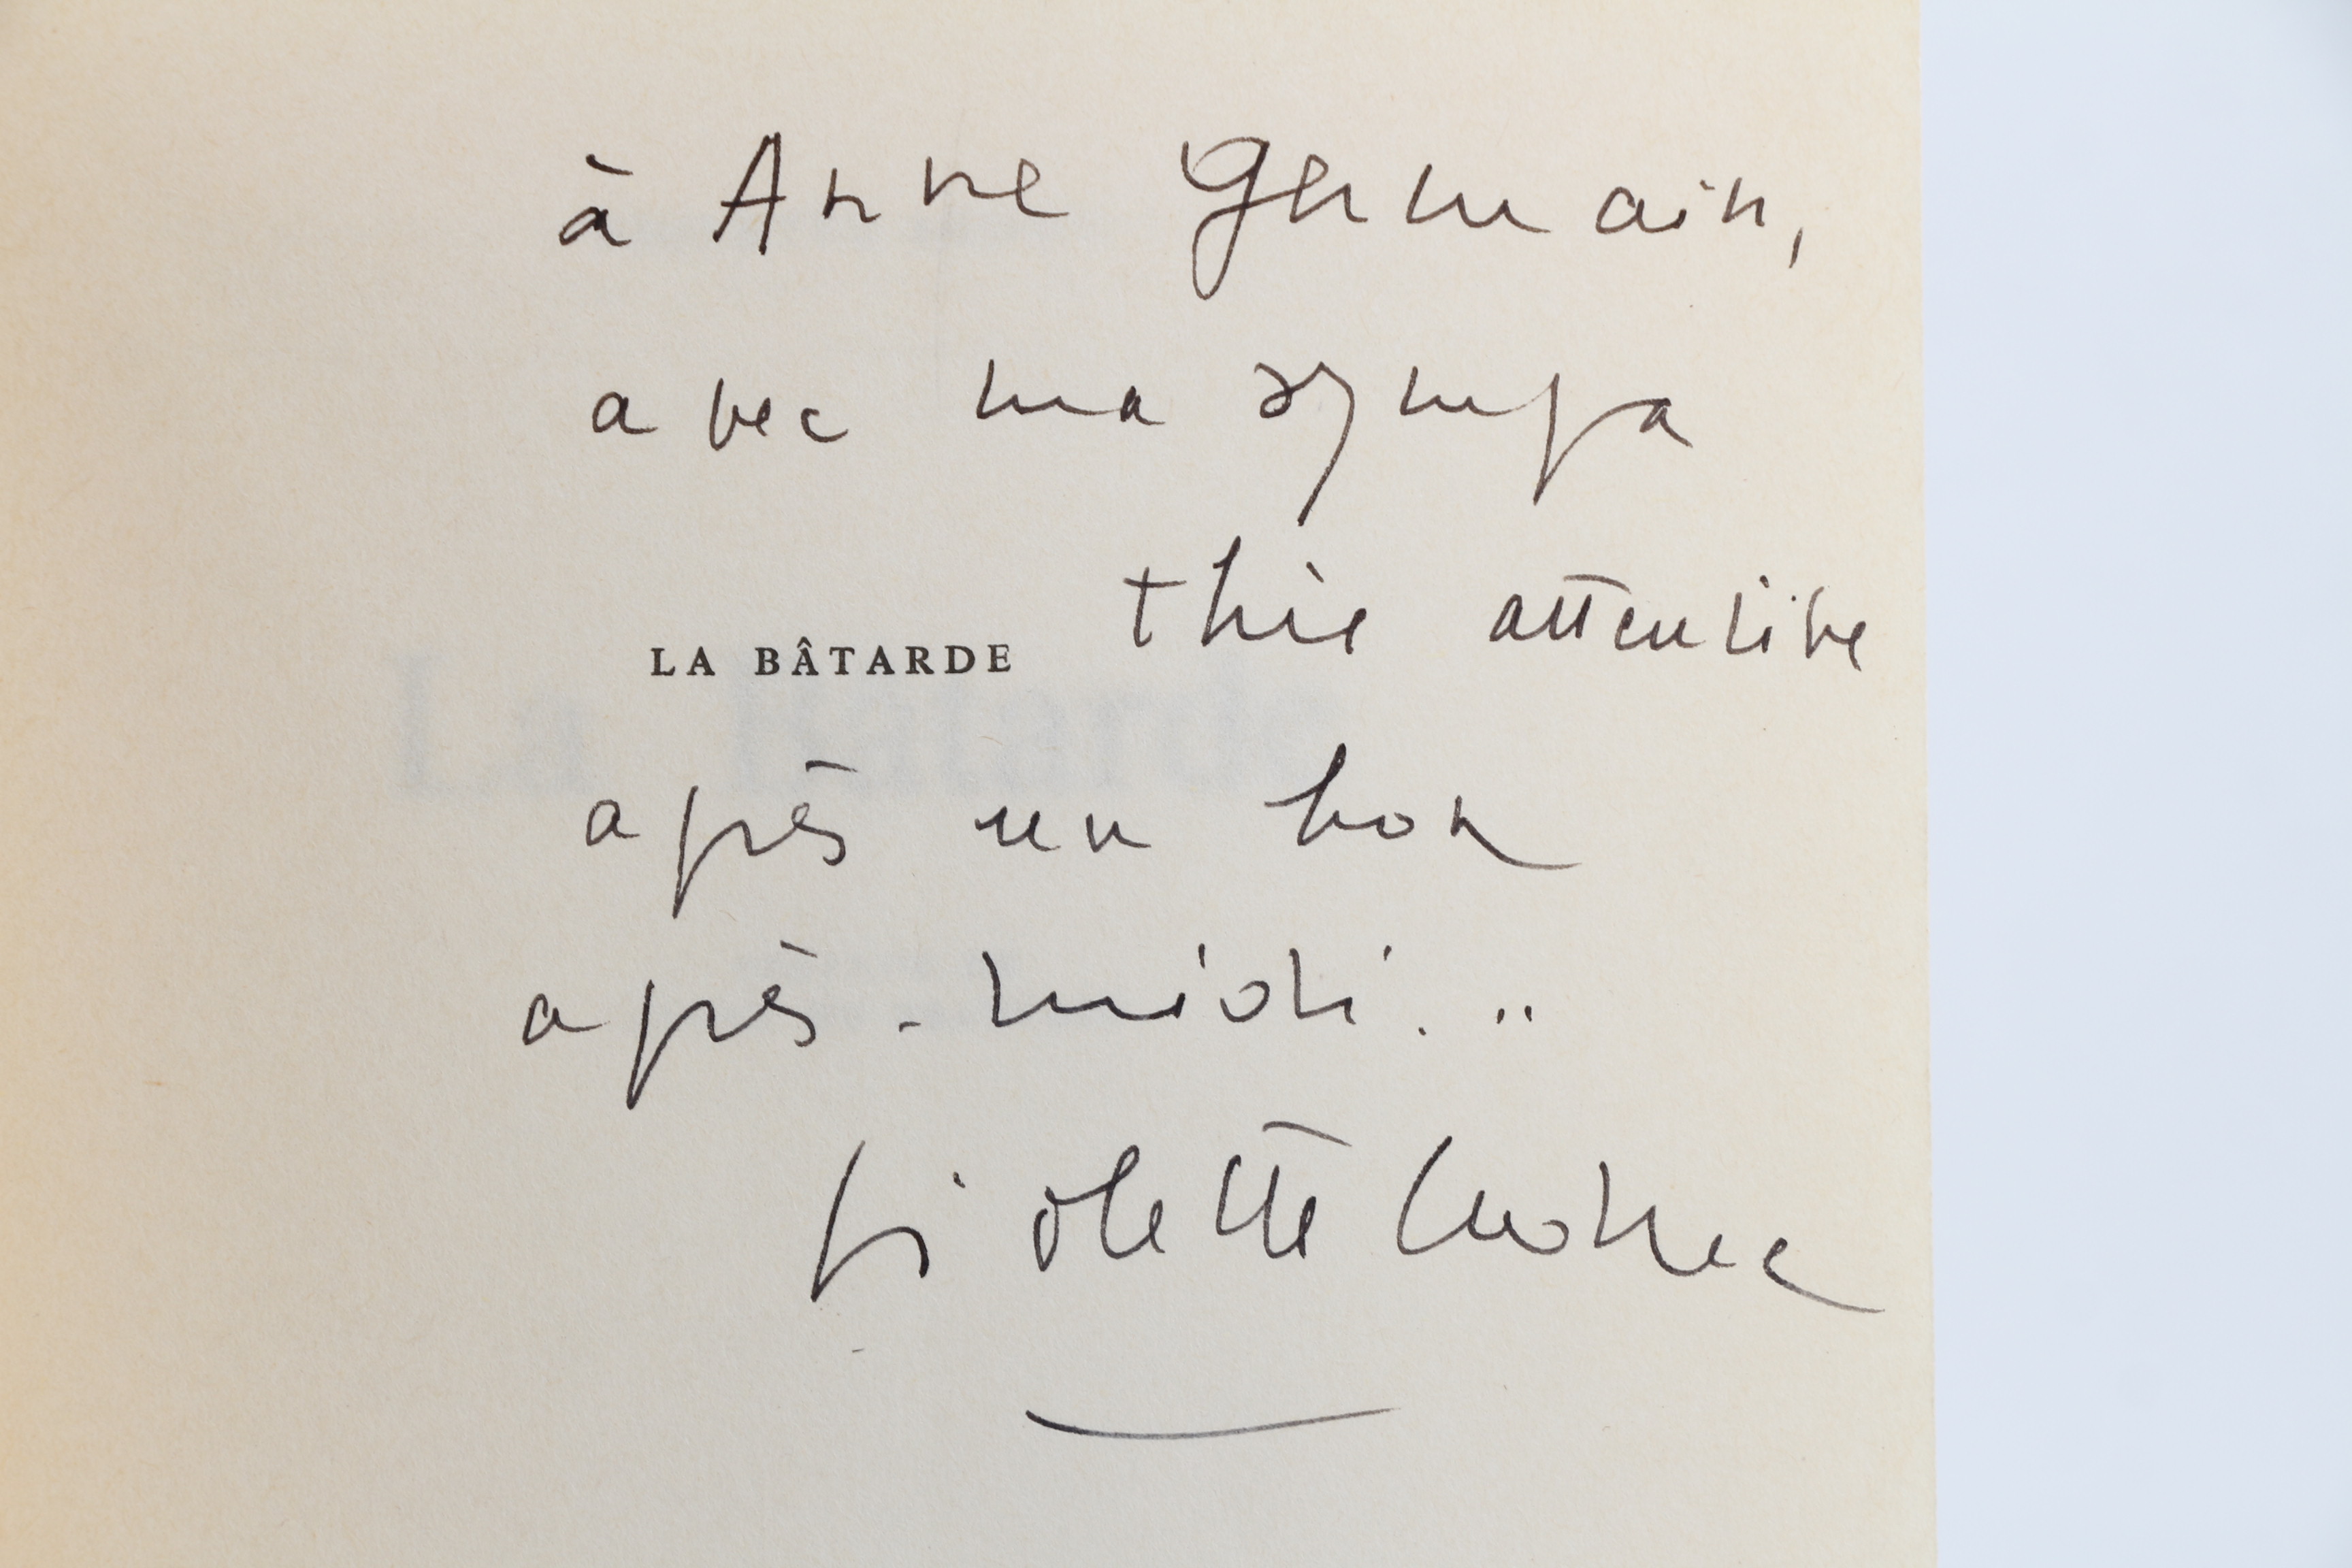 à Anne Germain,
avec ma sympa
thie attentive
LA BÂTARDE
après un bon
après-midi...
Violette Leduc